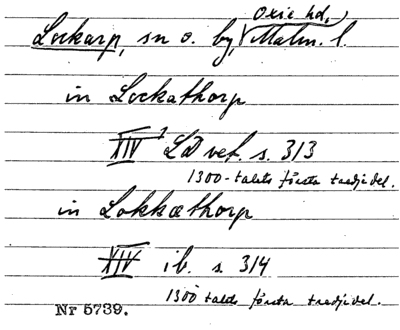 Oxie hd.,
Lockarp, sn o. by, Malm. l.
in Lockathorp
XIV 1 LD vet. s. 313
1300-talets första tredjedel.
in Lokkæthorp
XIV ib. s. 314
1300 talets första tredjedel.
Nr 5739.